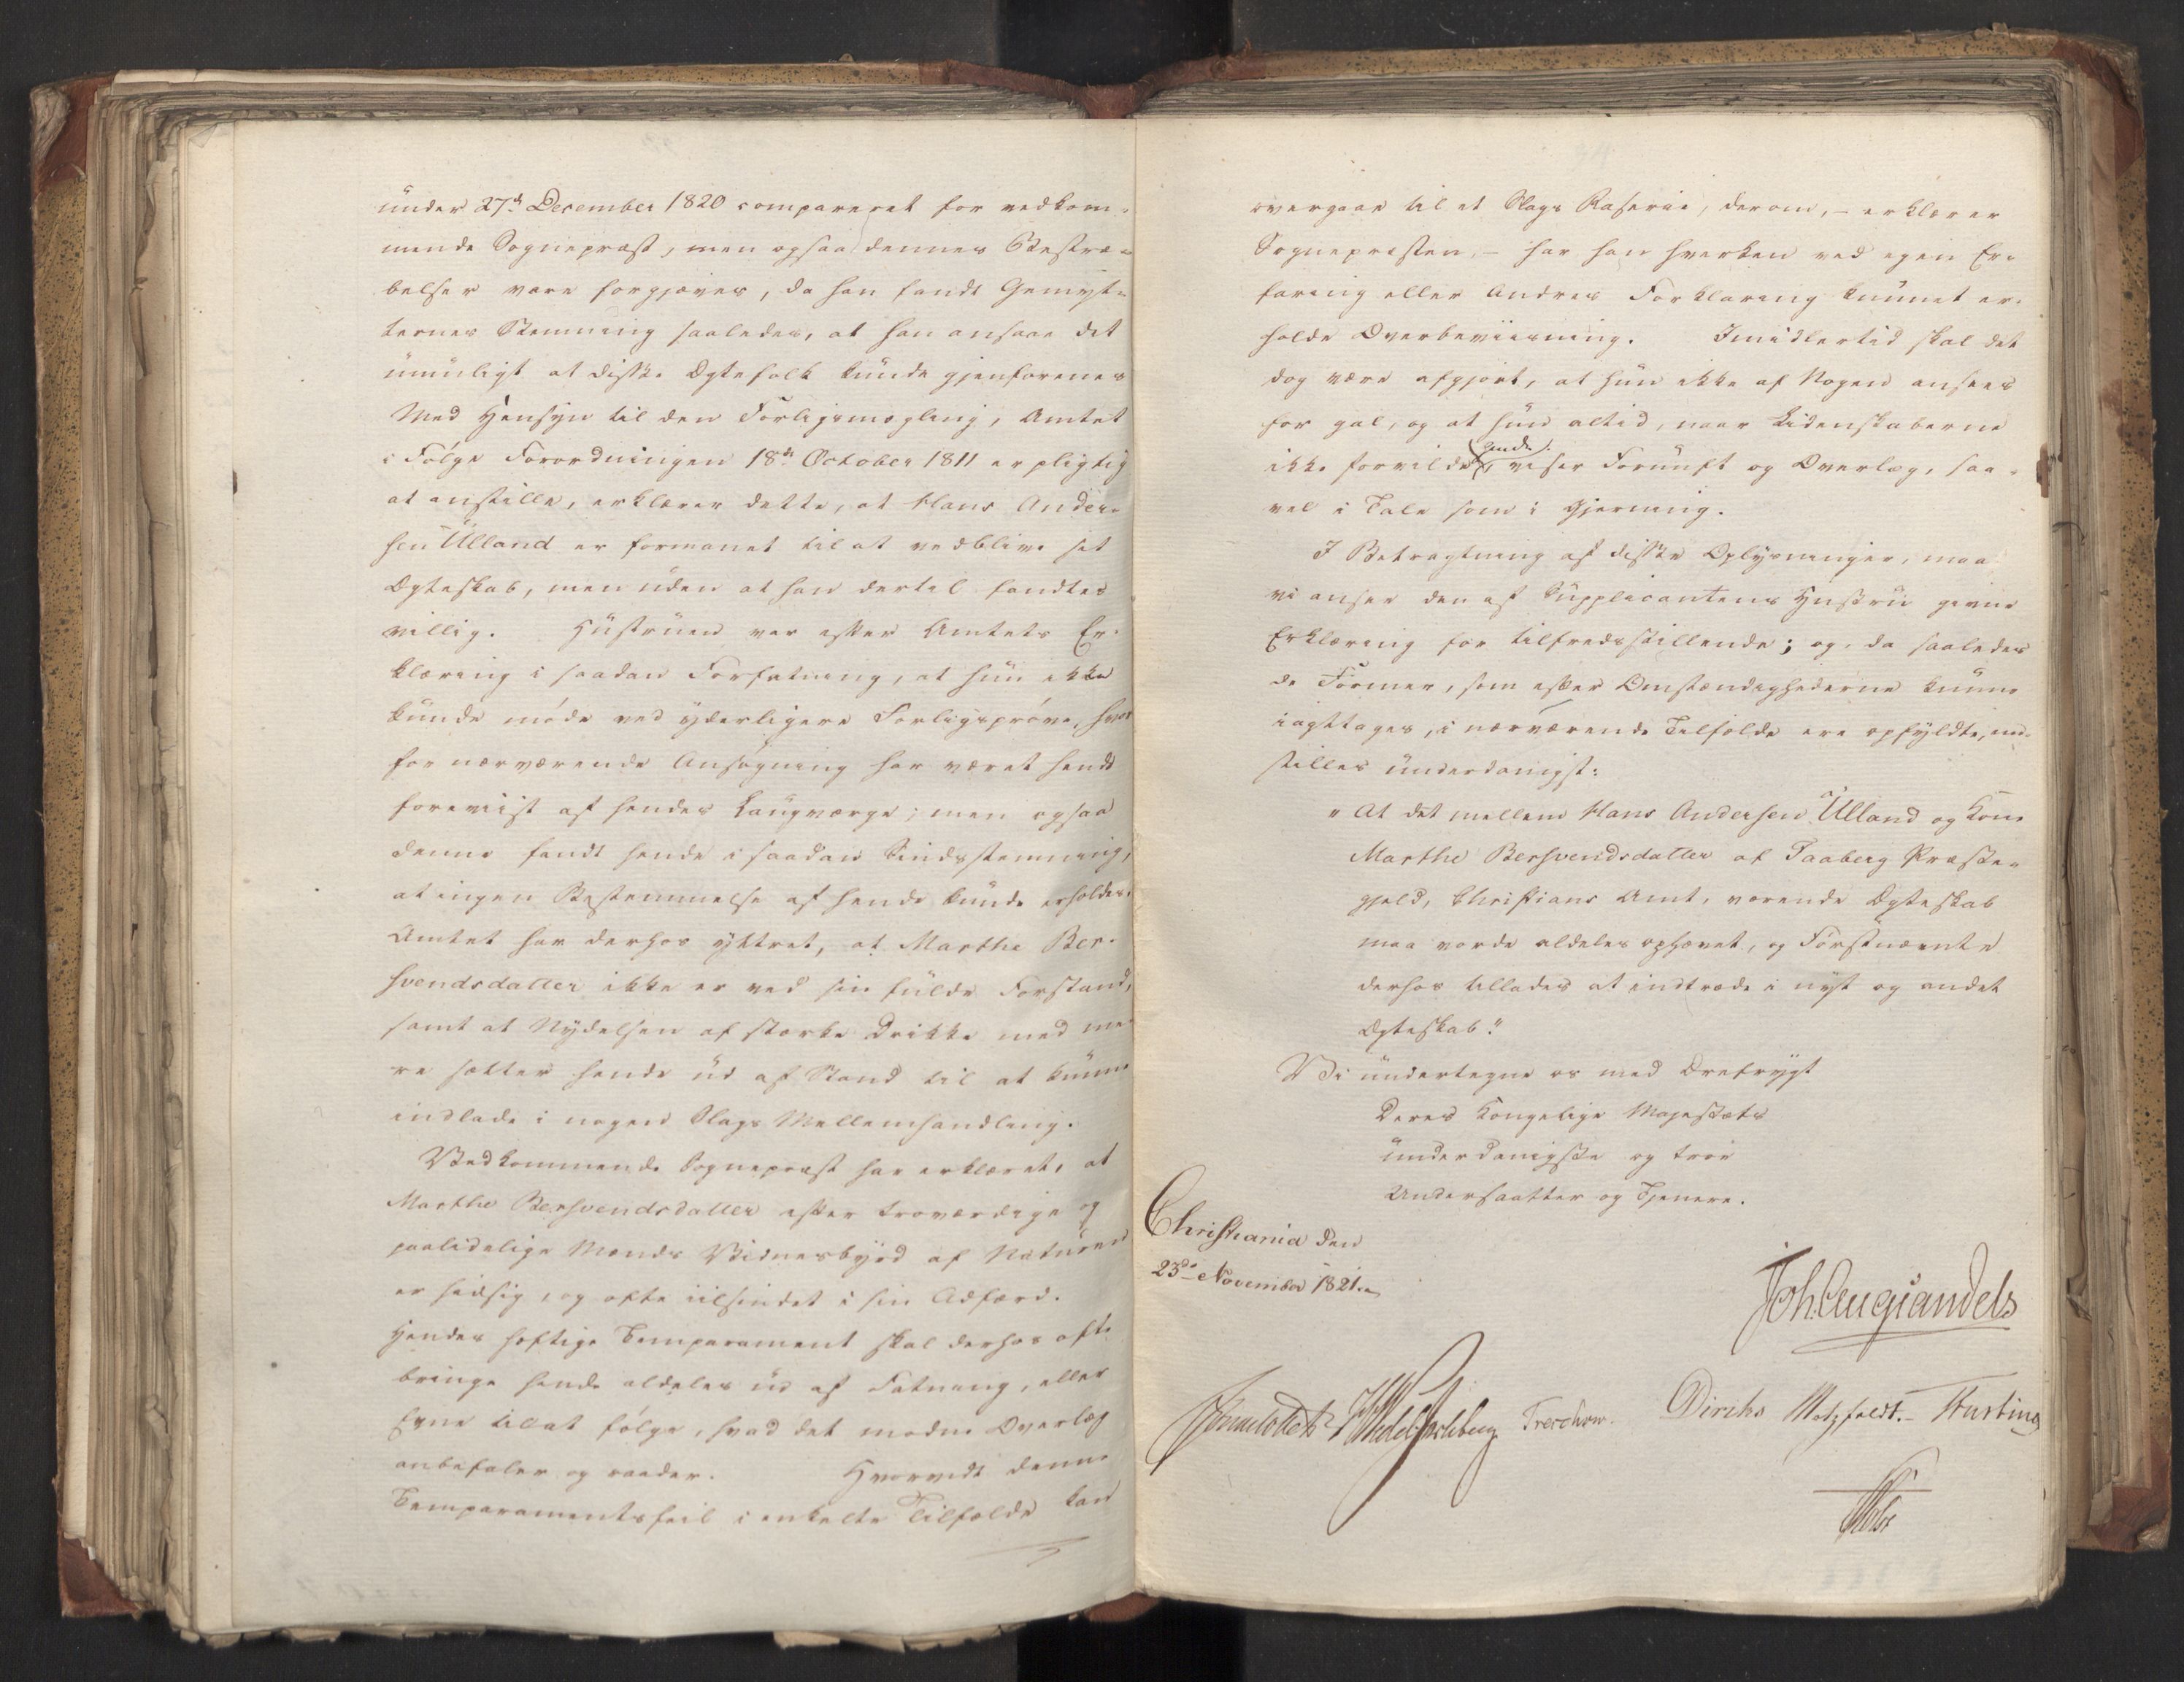 under 27de December 1820 compareret for vedkom-
mende Sognepræst, men ogsaa dennes Bestræ-
belser vare forgjæves, da han fandt Gemyt-
ternes Stemning saaledes, at han ansaae det
umuligt at disse Ægtefolk kunde gjenforenes
Med Hensyn til den Forligsmægling, Amtet
i Følge Forordningen 18de October 1811 er pligtig
at anstille, erklærer dette, at Hans Ander-
sen Ulland er formanet til at vedblive sit
Ægteskab, men uden at han dertil fandtes
villig. Hustruen var efter Amtets Er-
klæring i saadan Forfatning, at hun ikke
kunde møde ved yderligere Forligsprøve, hvor
for nærværende Ansøgning har været hende
foreviist af hendes Laugværge; men ogsaa
denne fandt hende i saadan Sindsstemning,
at ingen Bestemmelse af hende kunde erholdes.
Amtet har derhos yttret, at Marthe Ber-
svendsdatter ikke er ved sin fulde Forstand,
samt at Nydelsen af stærke Drikke med me-
re sætter hende ud af Stand til at kunne
indlade i nogen Slags Mellemhandling.
Vedkommende Sognepræst har erklæret, at
Marthe Bersvendsdatter efter troværdige og
paalidelige Mænds Vidnesbyrd af Naturen
er hidsig, og ofte iilsindet i sin Adfærd.
Hendes heftige Temperament skal derhos ofte
bringe hende aldeles ud af Fatning, eller
Evne til at følge, hvad det modne Overlæg
anbefaler og raader. Hvorvidt denne
Temperamentsfeil i enkelte Tilfælde kan
overgaae til et Slags Raserie, derom, - erklærer
Sognepræsten, - har han hverken ved egen Er-
faring eller Andres Forklaring kunnet er-
holde Overbeviisning. Imidlertid skal det
dog være afgjort, at hun ikke af Nogen ansees
for gal, og at hun altid, naar Lidenskaberne
ikke forvilde hende, viser Fornuft og Overlæg, saa-
vel i Tale som i Gjerning.
I Betragtning af disse Oplysninger, maa
vi ansee den af Supplicantens Hustru givne
Erklæring for tilfredsstillende; og, da saaledes
de Former, som efter Omstændighederne kunne
iagttages, i nærværende Tilfælde ere opfyldte, ind-
stilles underdanigst:
"At det mellem Hans Andersen Ulland og Kone
Marthe Bersvendsdatter af Faaberg Præste-
gjeld, Christians Amt, værende Ægteskab
maa vorde aldeles ophævet, og Førstnævnte
derhos tillades at indtræde i nyt og andet
Ægteskab."
Vi undertegne os med Ærefrygt
Deres Kongelige Majestæts
underdanigste og troe
Undersaatter og Tjenere.
Christiania den
23de November 1821.
Joh. Aug. Sandels
Sommerhielm HWedel Jarlsberg Treschow. Diriks Motzfeldt. Fasting
Holst